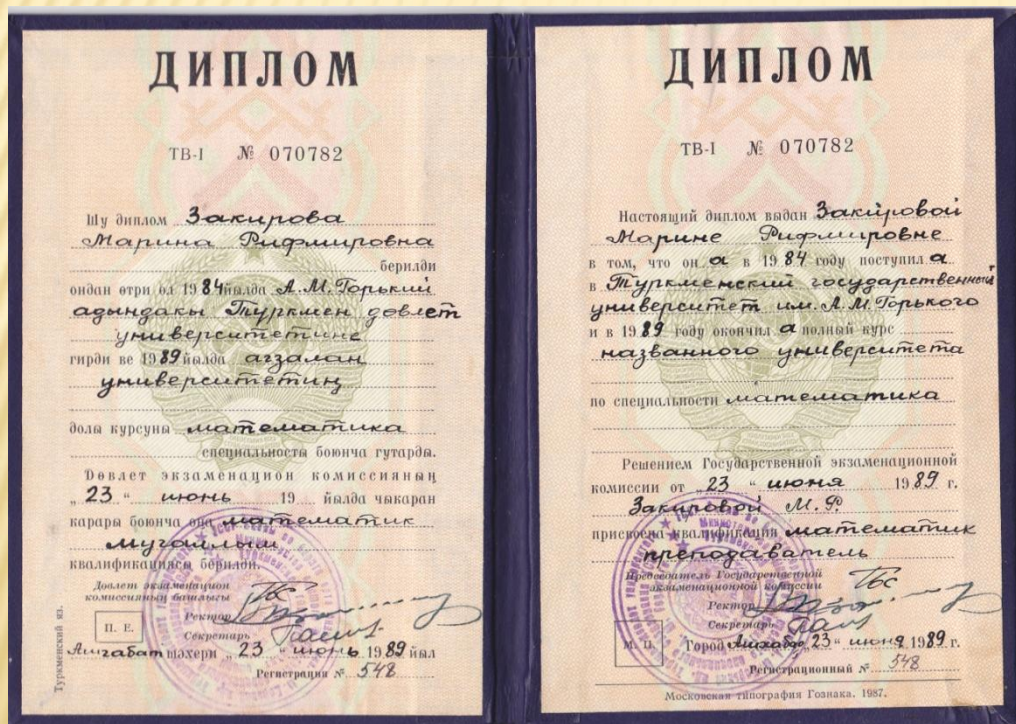 ДИПЛОМ
ТВ-I № 070782
Шу диплом Закирова
Марина Рифмировна
берилди
ондан өтри ол 1984 йылда А.М.Горький
адындакы Түркмен дөвлет
университетине
гирди ве 1989 йылда агзалан
университетиң
долы курсуны математика
специальносты боюнча гутарды.
Дөвлет экзаменацион комиссияның
„23“ июнь 19 йылда чыкаран
карары боюнча оңа математик
мугаллым
квалификациясы берилди.
Дөвлет экзаменацион
комиссияның башлыгы
Ректор
Секретарь
П. Е.
Ашгабат шәхери „23“ июнь 1989 йыл
Регистрационный № 548
Туркменский яз.
ДИПЛОМ
ТВ-I № 070782
Настоящий диплом выдан Закировой
Марине Рифмировне
в том, что он а в 1984 году поступил а
в Туркменский государственный
университет им. А.М.Горького
и в 1989 году окончил а полный курс
названного университета
по специальности математика
Решением Государственной экзаменационной
комиссии от „23“ июня 1989 г.
Закировой М.Р.
присвоена квалификация математик
преподаватель
Председатель Государственной
экзаменационной комиссии
Ректор
Секретарь
М. П.
Город Ашхабад „23“ июня 1989 г.
Регистрационный № 548
Московская типография Гознака. 1987.